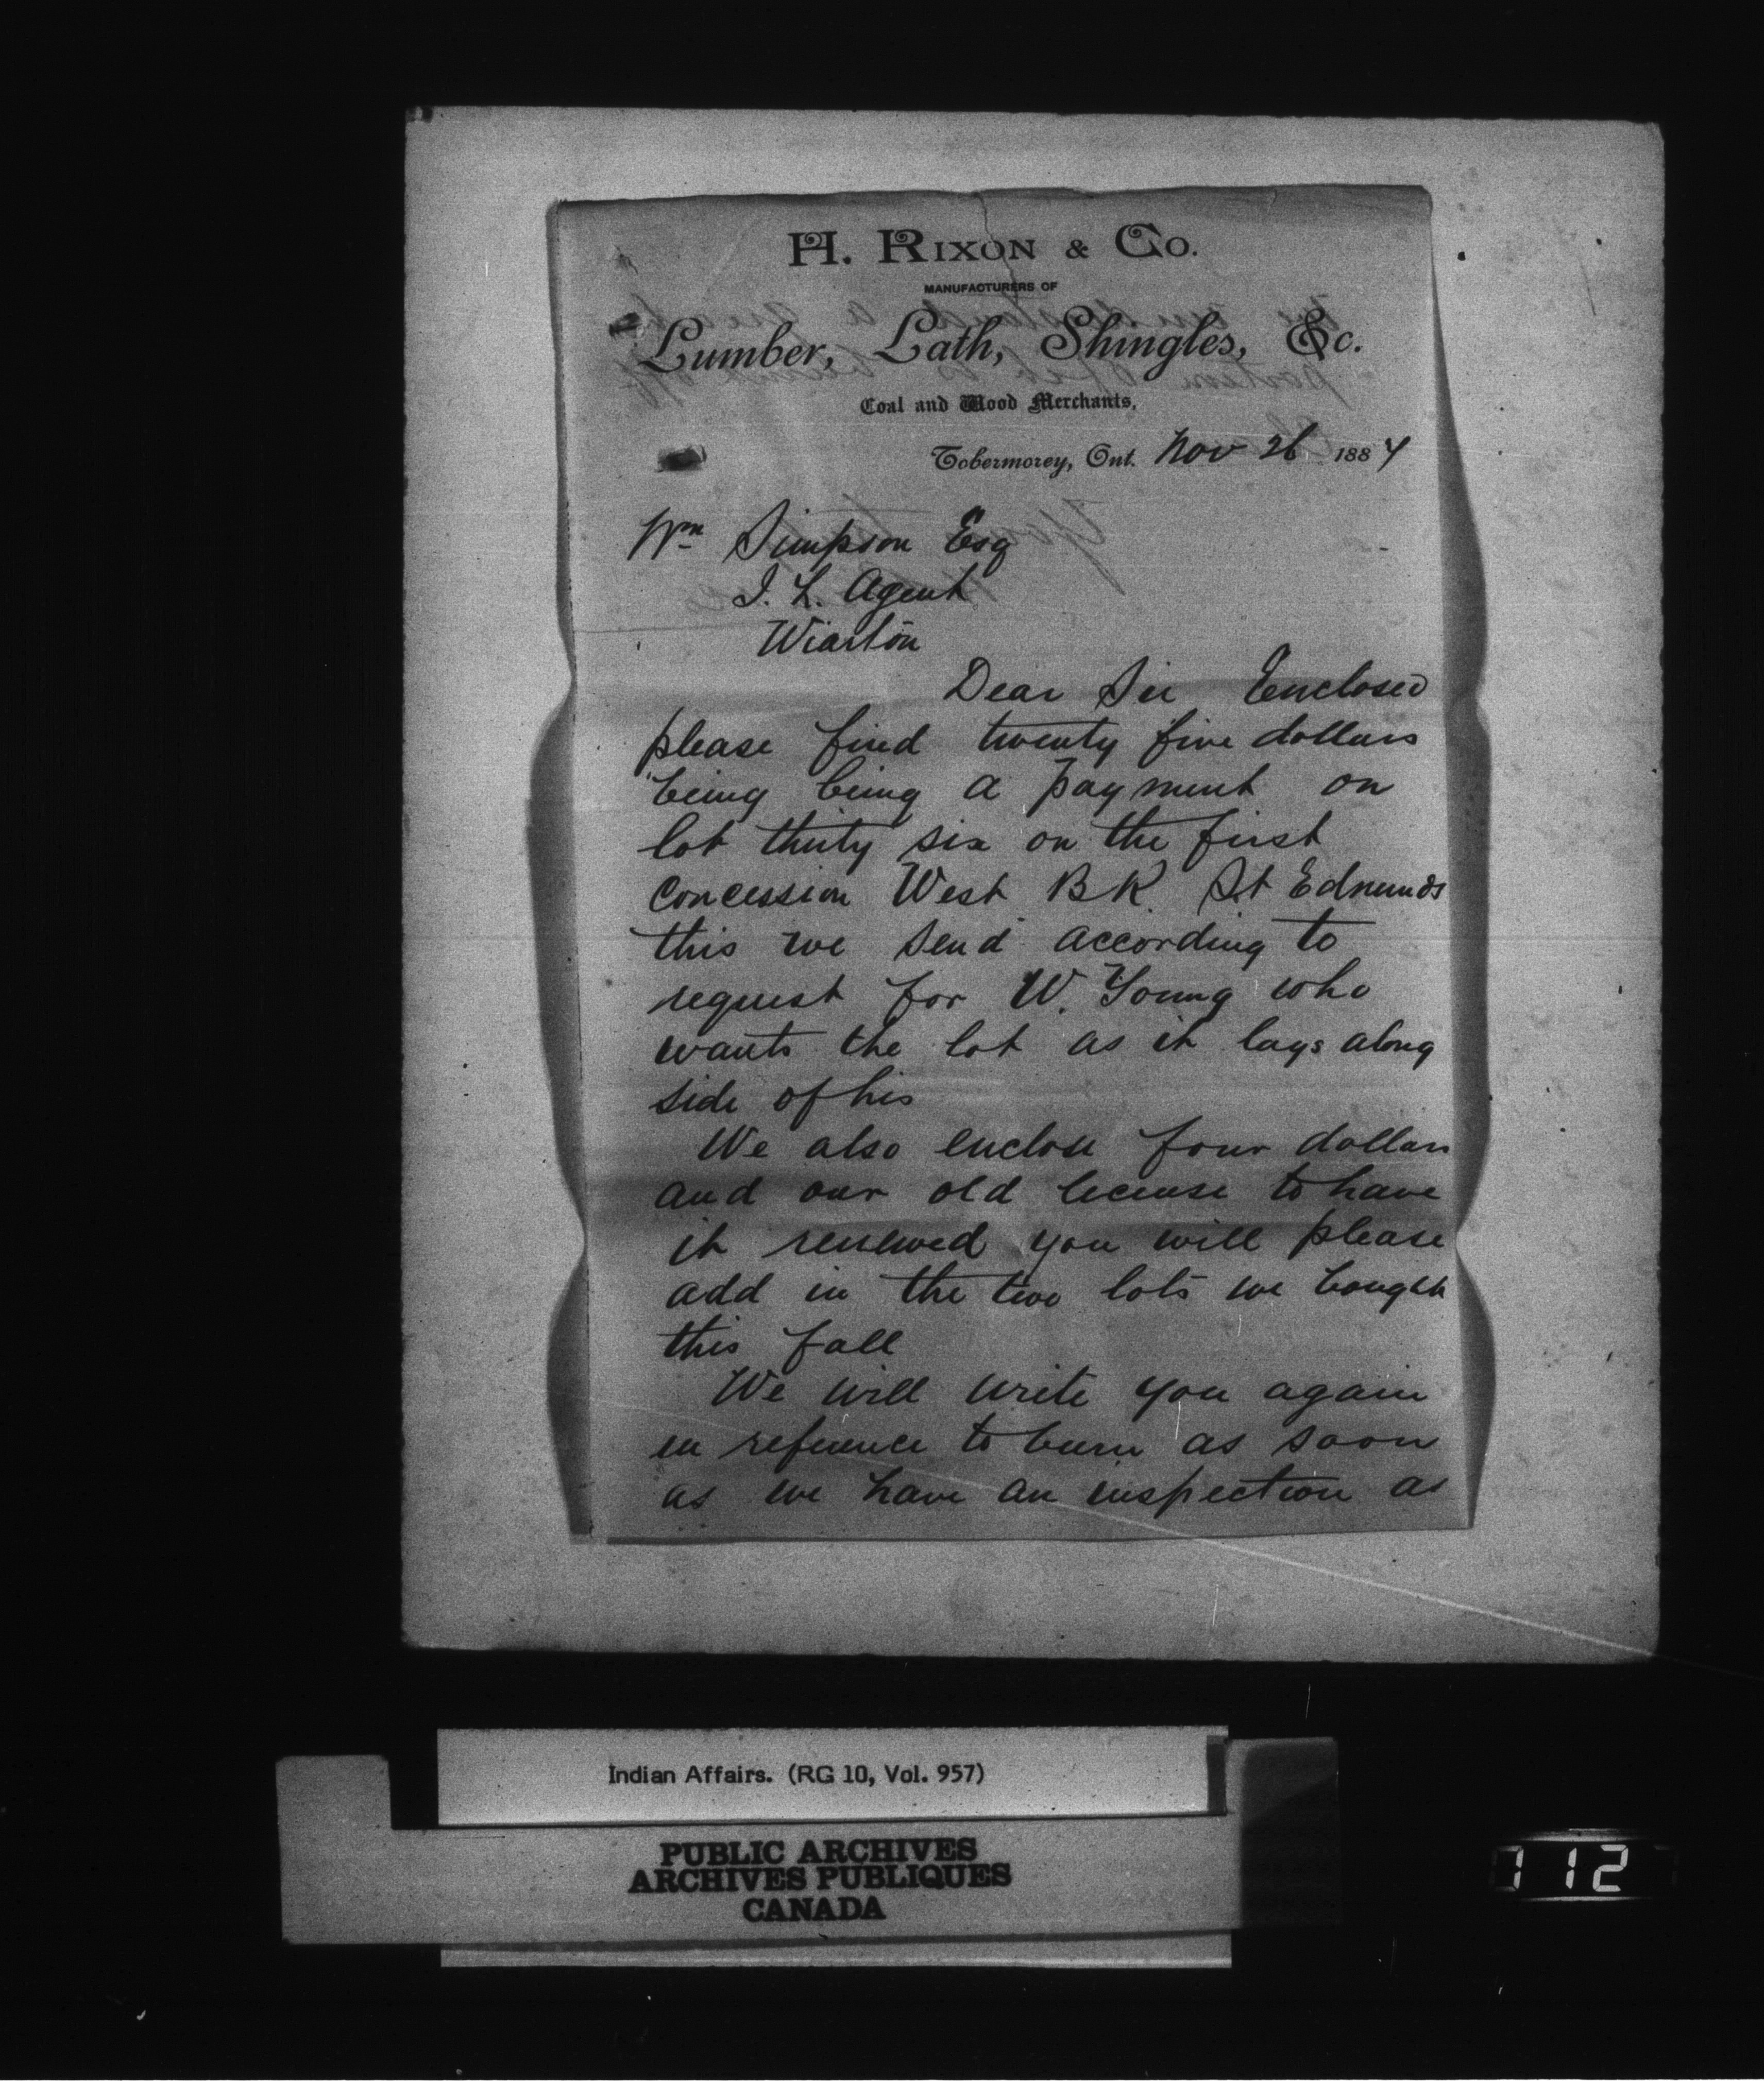 H. RIXON & CO.
MANUFACTURERS OF
Lumber, Lath, Shingles, &c.
Coal and Wood Merchants,
Tobermorey, Ont. Nov 26 1884
Wm Simpson Esq
I. L. Agent
Wiarton
Dear Sir Enclosed
please find twenty five dollars
being being a payment on
lot thirty six on the first
concession West B R. St Edmunds
this we send according to
request for W. Young who
wants the lot as it lays along
side of his
We also enclose four dollars
and our old license to have
it renewed you will please
add in the two lots we bought
this fall
We will write you again
in reference to burn as soon
as we have an inspection as
Indian Affairs. (RG 10, Vol. 957)
PUBLIC ARCHIVES
ARCHIVES PUBLIQUES
CANADA
112